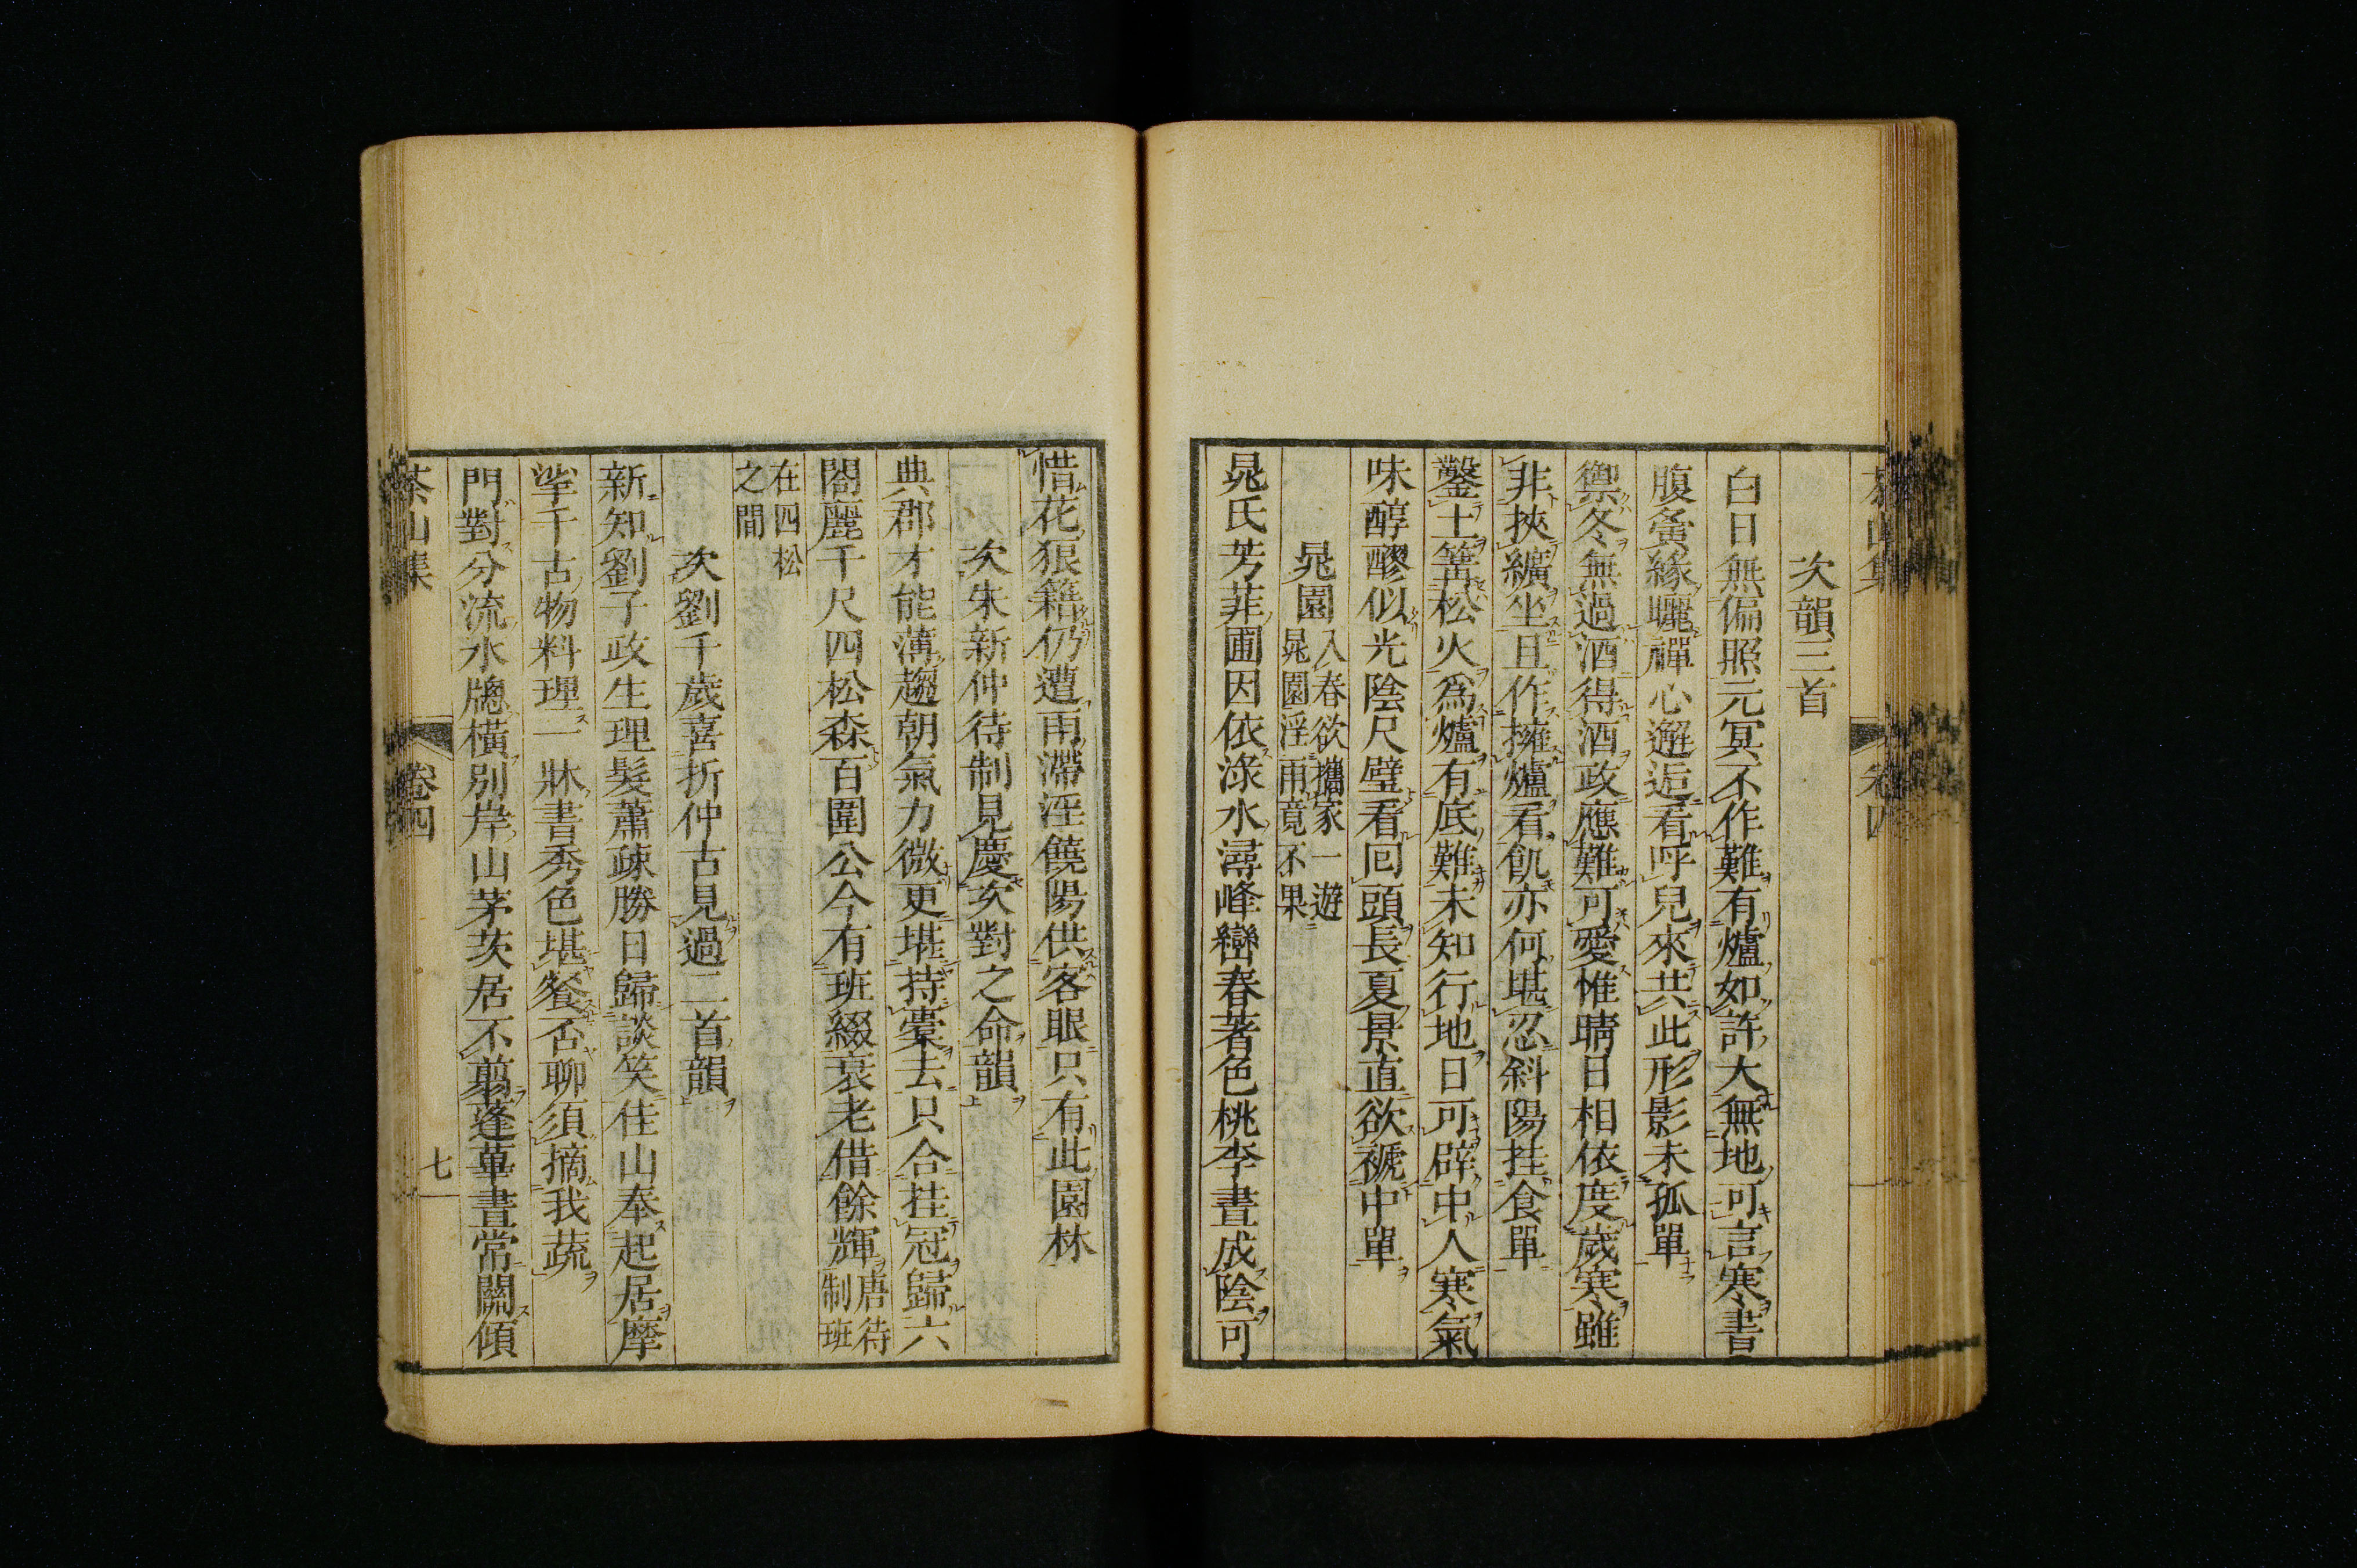 次韻三首
白日無偏照元冥不作難有爐如許大無地可言寒書
腹寅緣曬禪心邂逅看呼兒來共此形影未孤單
禦冬無過酒得酒政應難可愛惟晴日相依度歲寒雖
非挾纊坐且作擁爐看飢亦何堪忍斜陽挂食單
鑿土篝松火為爐有底難未知行地日可辟中人寒氣
味醇醪似光陰尺璧看回頭長夏景直欲褫中單
晁園 入春欲攜家一遊
晁園淫雨竟不果
晁氏芳菲圃因依淥水潯峰巒春著色桃李晝成陰可
惜花狼籍仍遭雨滯淫饒陽供客眼只有此園林
次朱新仲待制見慶次對之命韻
典郡才能薄趨朝氣力微更堪持橐去只合挂冠歸六
閤麗千尺四松森百圍公今有班綴衰老借餘輝 唐待
制班
在四松
之間
次劉千歲喜折仲古見過二首韻
新知劉子政生理髮蕭疎勝日歸談笑佳山奉起居摩
挲千古物料理一牀書秀色堪餐否聊須摘我蔬
門對分流水牕橫別岸山茅茨居不翦蓬蓽晝常關傾
茶山集
卷四
七